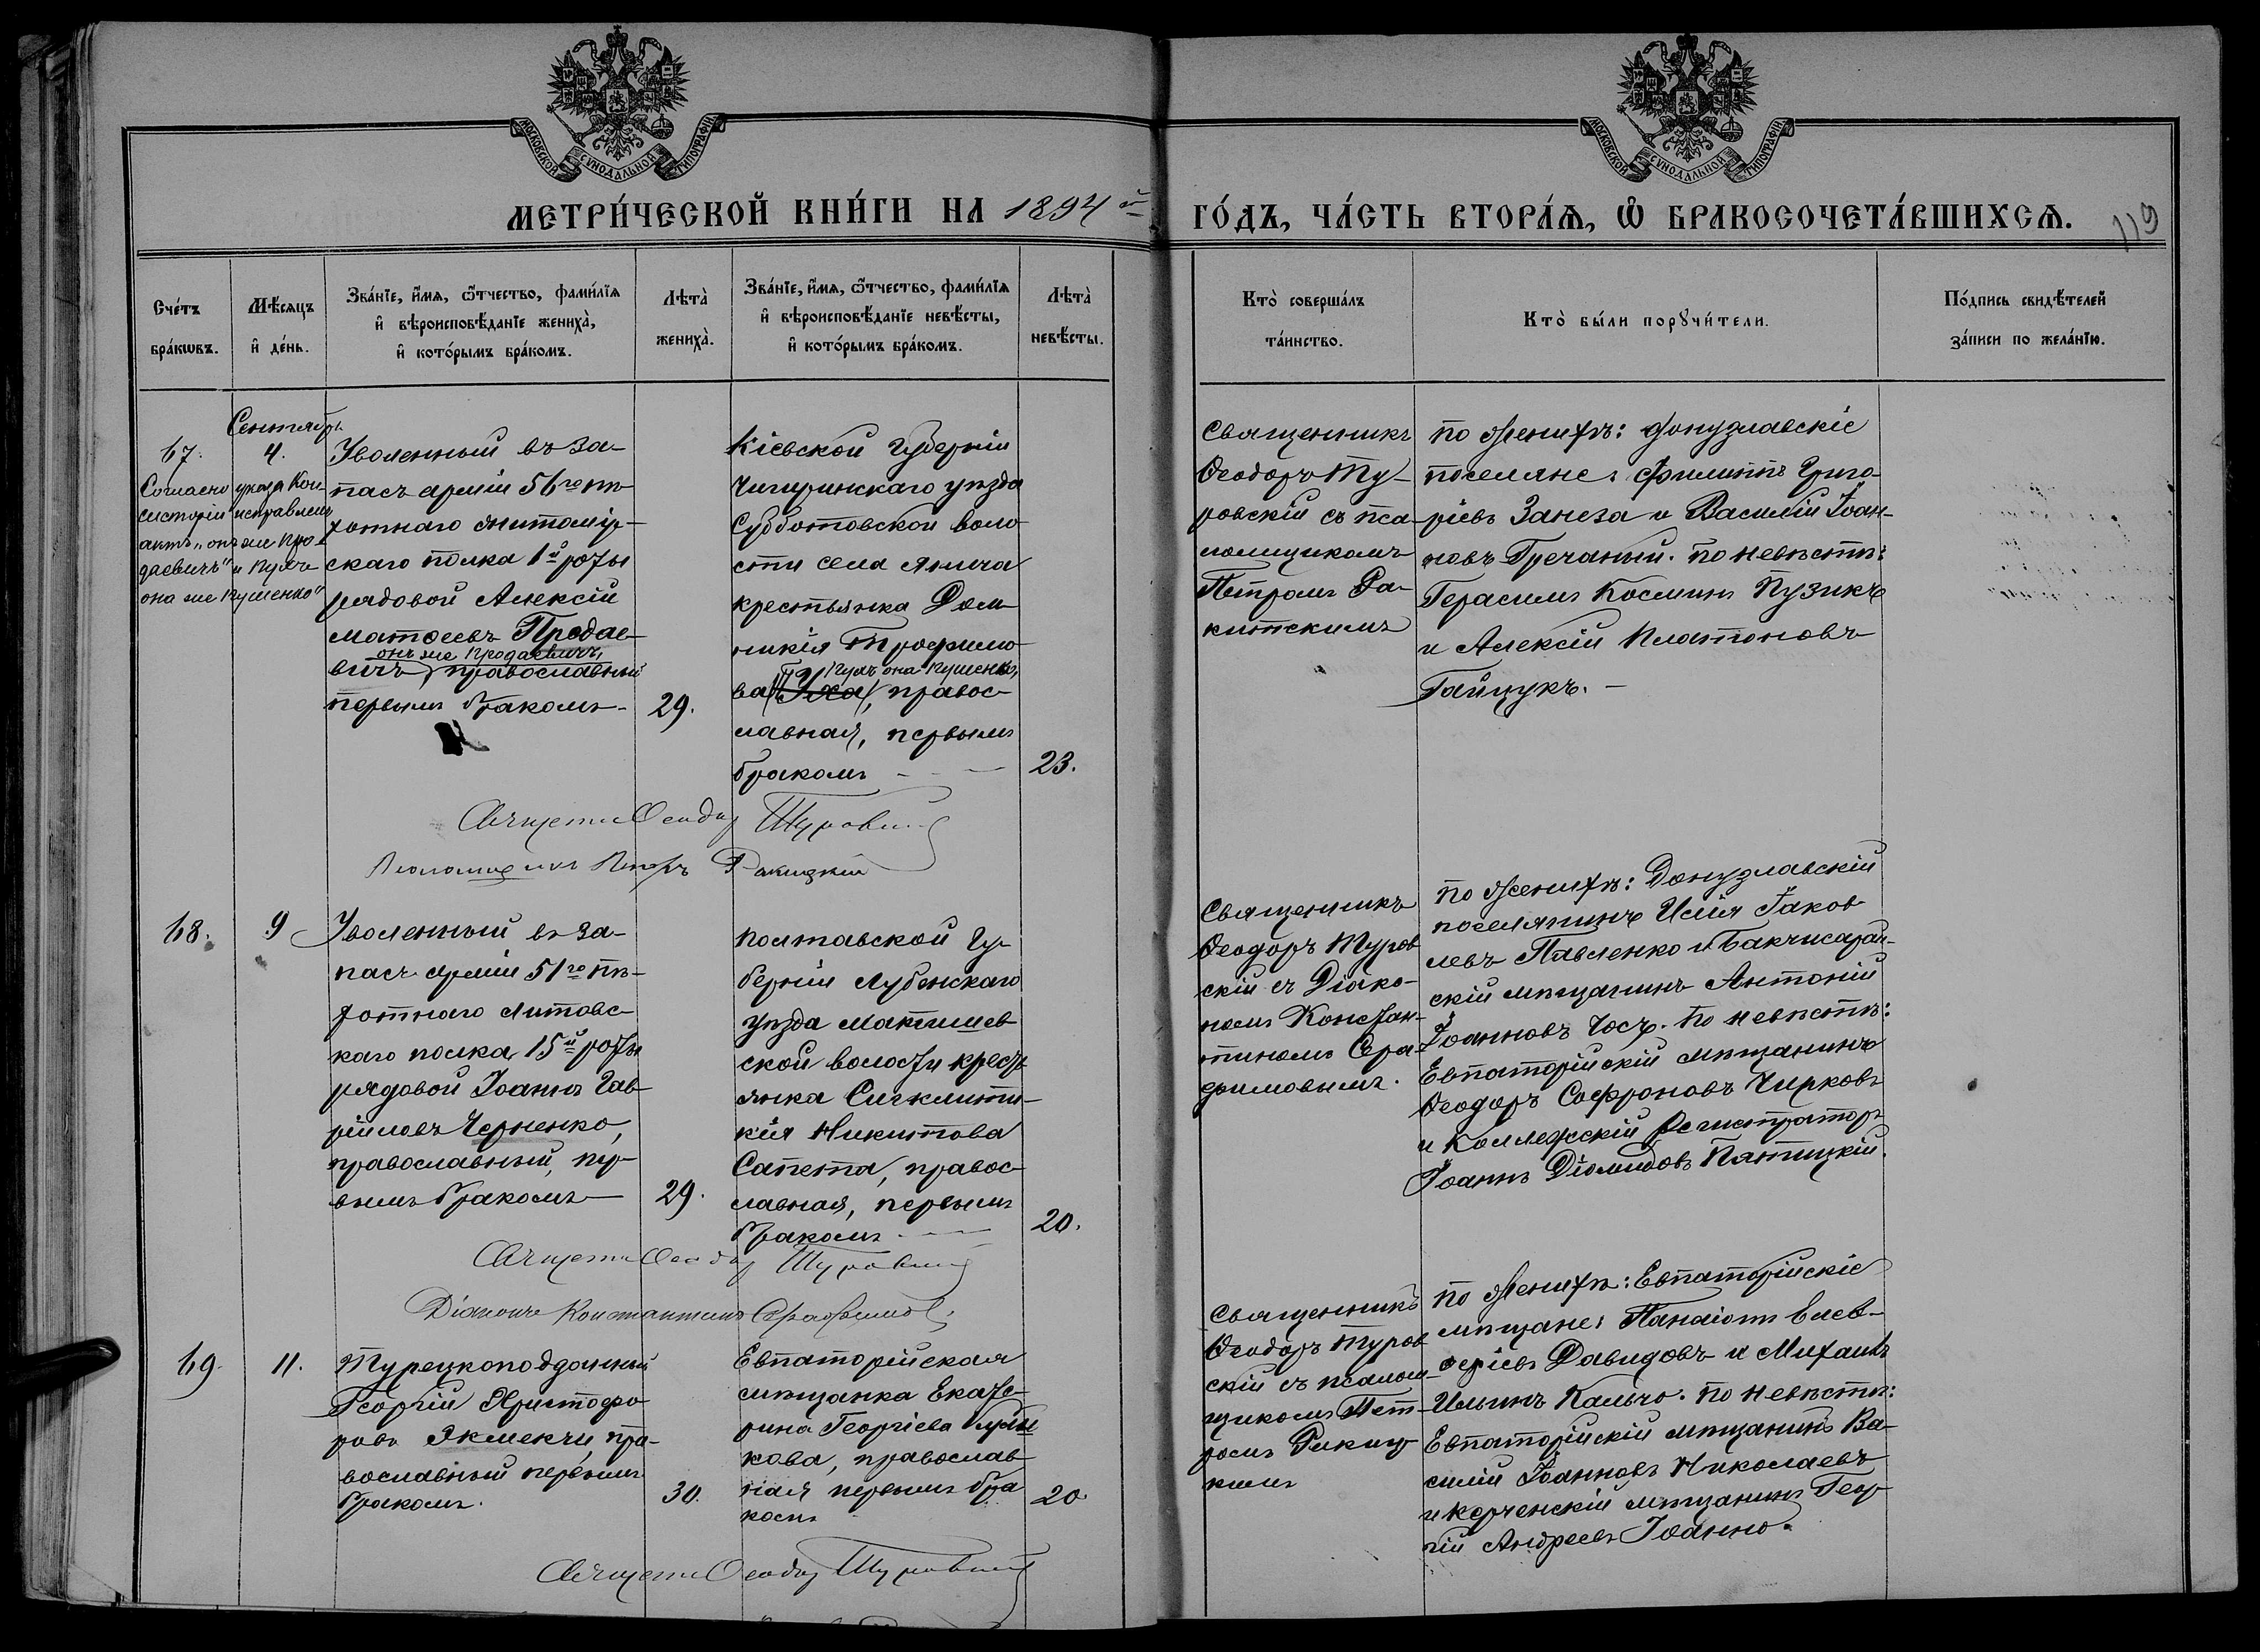 МОСКОВСКОЙ СѴНОДАЛЬНОЙ ТИПОГРАФІИ
МОСКОВСКОЙ СѴНОДАЛЬНОЙ ТИПОГРАФІИ
МЕТРИ́ЧЕСКОЙ КНИ́ГИ НА 1894 й
ГО́ДЪ, ЧА́СТЬ ВТОРА́Я, Ѿ БРАКОСОЧЕТА́ВШИХСЯ.
119
Сче́тъ
бра́кѡвъ.
Мѣ́сяцъ
и҆ де́нь.
Зва́нїе, и҆́мя, ѻ҆́тчество, фами́лїя
и҆ вѣроисповѣ́данїе жениха̀,
и҆ кото́рымъ бра́комъ.
Лѣта̀
жениха̀.
Зва́нїе, и҆́мя, ѻ҆́тчество, фами́лїя
и҆ вѣроисповѣ́данїе невѣ́сты,
и҆ кото́рымъ бра́комъ.
Лѣта̀
невѣ́сты.
Кто̀ соверша́лъ
та́инство.
Кто̀ бы́ли порꙋчи́тели.
По́дпись свидѣ́телей
за́писи по жела́нїю.
Сентябрь
67.
4.
Согласно указа Кон-
систоріи исправленъ
актъ „онъ же Про-
даевичъ" и Пуль
она же Пушенко"
Уволенный въ за-
пасъ арміи 56го пѣ-
хотнаго Житомір-
скаго полка 1й роты
рядовой Алексій
Матѳеевъ Продае-
онъ же Продаевичъ,
вичъ, православный
первымъ бракомъ
29.
Кіевской губерніи
Чигиринскаго уѣзда
Субботовской воло-
сти села Янича
крестьянка Дом-
никія Трофимо-
она Пушенко,
ва, правос-
лавная, первымъ
бракомъ
23.
Священникъ
Ѳеодоръ Ту-
ровскій съ пса-
ломщикомъ
Петромъ Ра-
китскимъ
по женихѣ: Донузлавскіе
поселяне: Филиппъ Григо-
ріевъ Занеза и Василій Іоан-
новъ Гречаный. по невѣстѣ:
Герасимъ Косминъ Пузикъ
и Алексій Платоновъ
Гайцукъ.
Священникъ Ѳеодоръ Туровскій
Псаломщикъ Петръ Ракицкій
68.
9
Уволенный въ за-
пасъ арміи 51го пѣ-
хотнаго Литовс-
каго полка 15й роты
рядовой Іоаннъ Гав-
ріиловъ Черненко,
православный, пер-
вымъ бракомъ
29.
Полтавской Гу-
берніи Лубенскаго
уѣзда Матяшев-
ской волости кресть-
янка Сигклити-
кія Никитова
Сапета, правос-
лавная, первымъ
бракомъ
20.
Священникъ
Ѳеодоръ Туров
скій съ Діако-
номъ Констан-
тиномъ Сера-
фимовымъ.
по женихѣ: Донузлавскій
поселянинъ Илія Іаков-
левъ Павленко и Бакчисарай-
скій мѣщанинъ Антоній
Іоанновъ Чосъ. по невѣстѣ:
Евпаторійскій мѣщанинъ
Ѳеодоръ Софроновъ Чирковъ
и Коллежскій Регистраторъ
Іоаннъ Діомидовъ Пятицкій.
Священникъ Ѳеодоръ Туровскій
Діаконъ Константинъ Серафимовъ
69.
11.
Турецкоподданный
Георгій Христофо-
ровъ Экмекчи, пра-
вославный первымъ
бракомъ.
30.
Евпаторійская
мѣщанка Екате-
рина Георгіева
кова, православ-
ная первымъ бра
комъ
20
Священникъ
Ѳеодоръ Туров
скій съ псалом-
щикомъ Пет-
ромъ Ракиц-
кимъ
по женихѣ: Евпаторійскіе
мѣщане: Панаіотъ Елев-
ѳеріевъ Давидовъ и Михаилъ
Ильинъ Кальчо. по невѣстѣ:
Евпаторійскій мѣщанинъ Ва-
силій Іоанновъ Николаевъ
и керченскій мѣщанинъ Геор-
гій Андреевъ Іоанно.
Священникъ Ѳеодоръ Туровскій